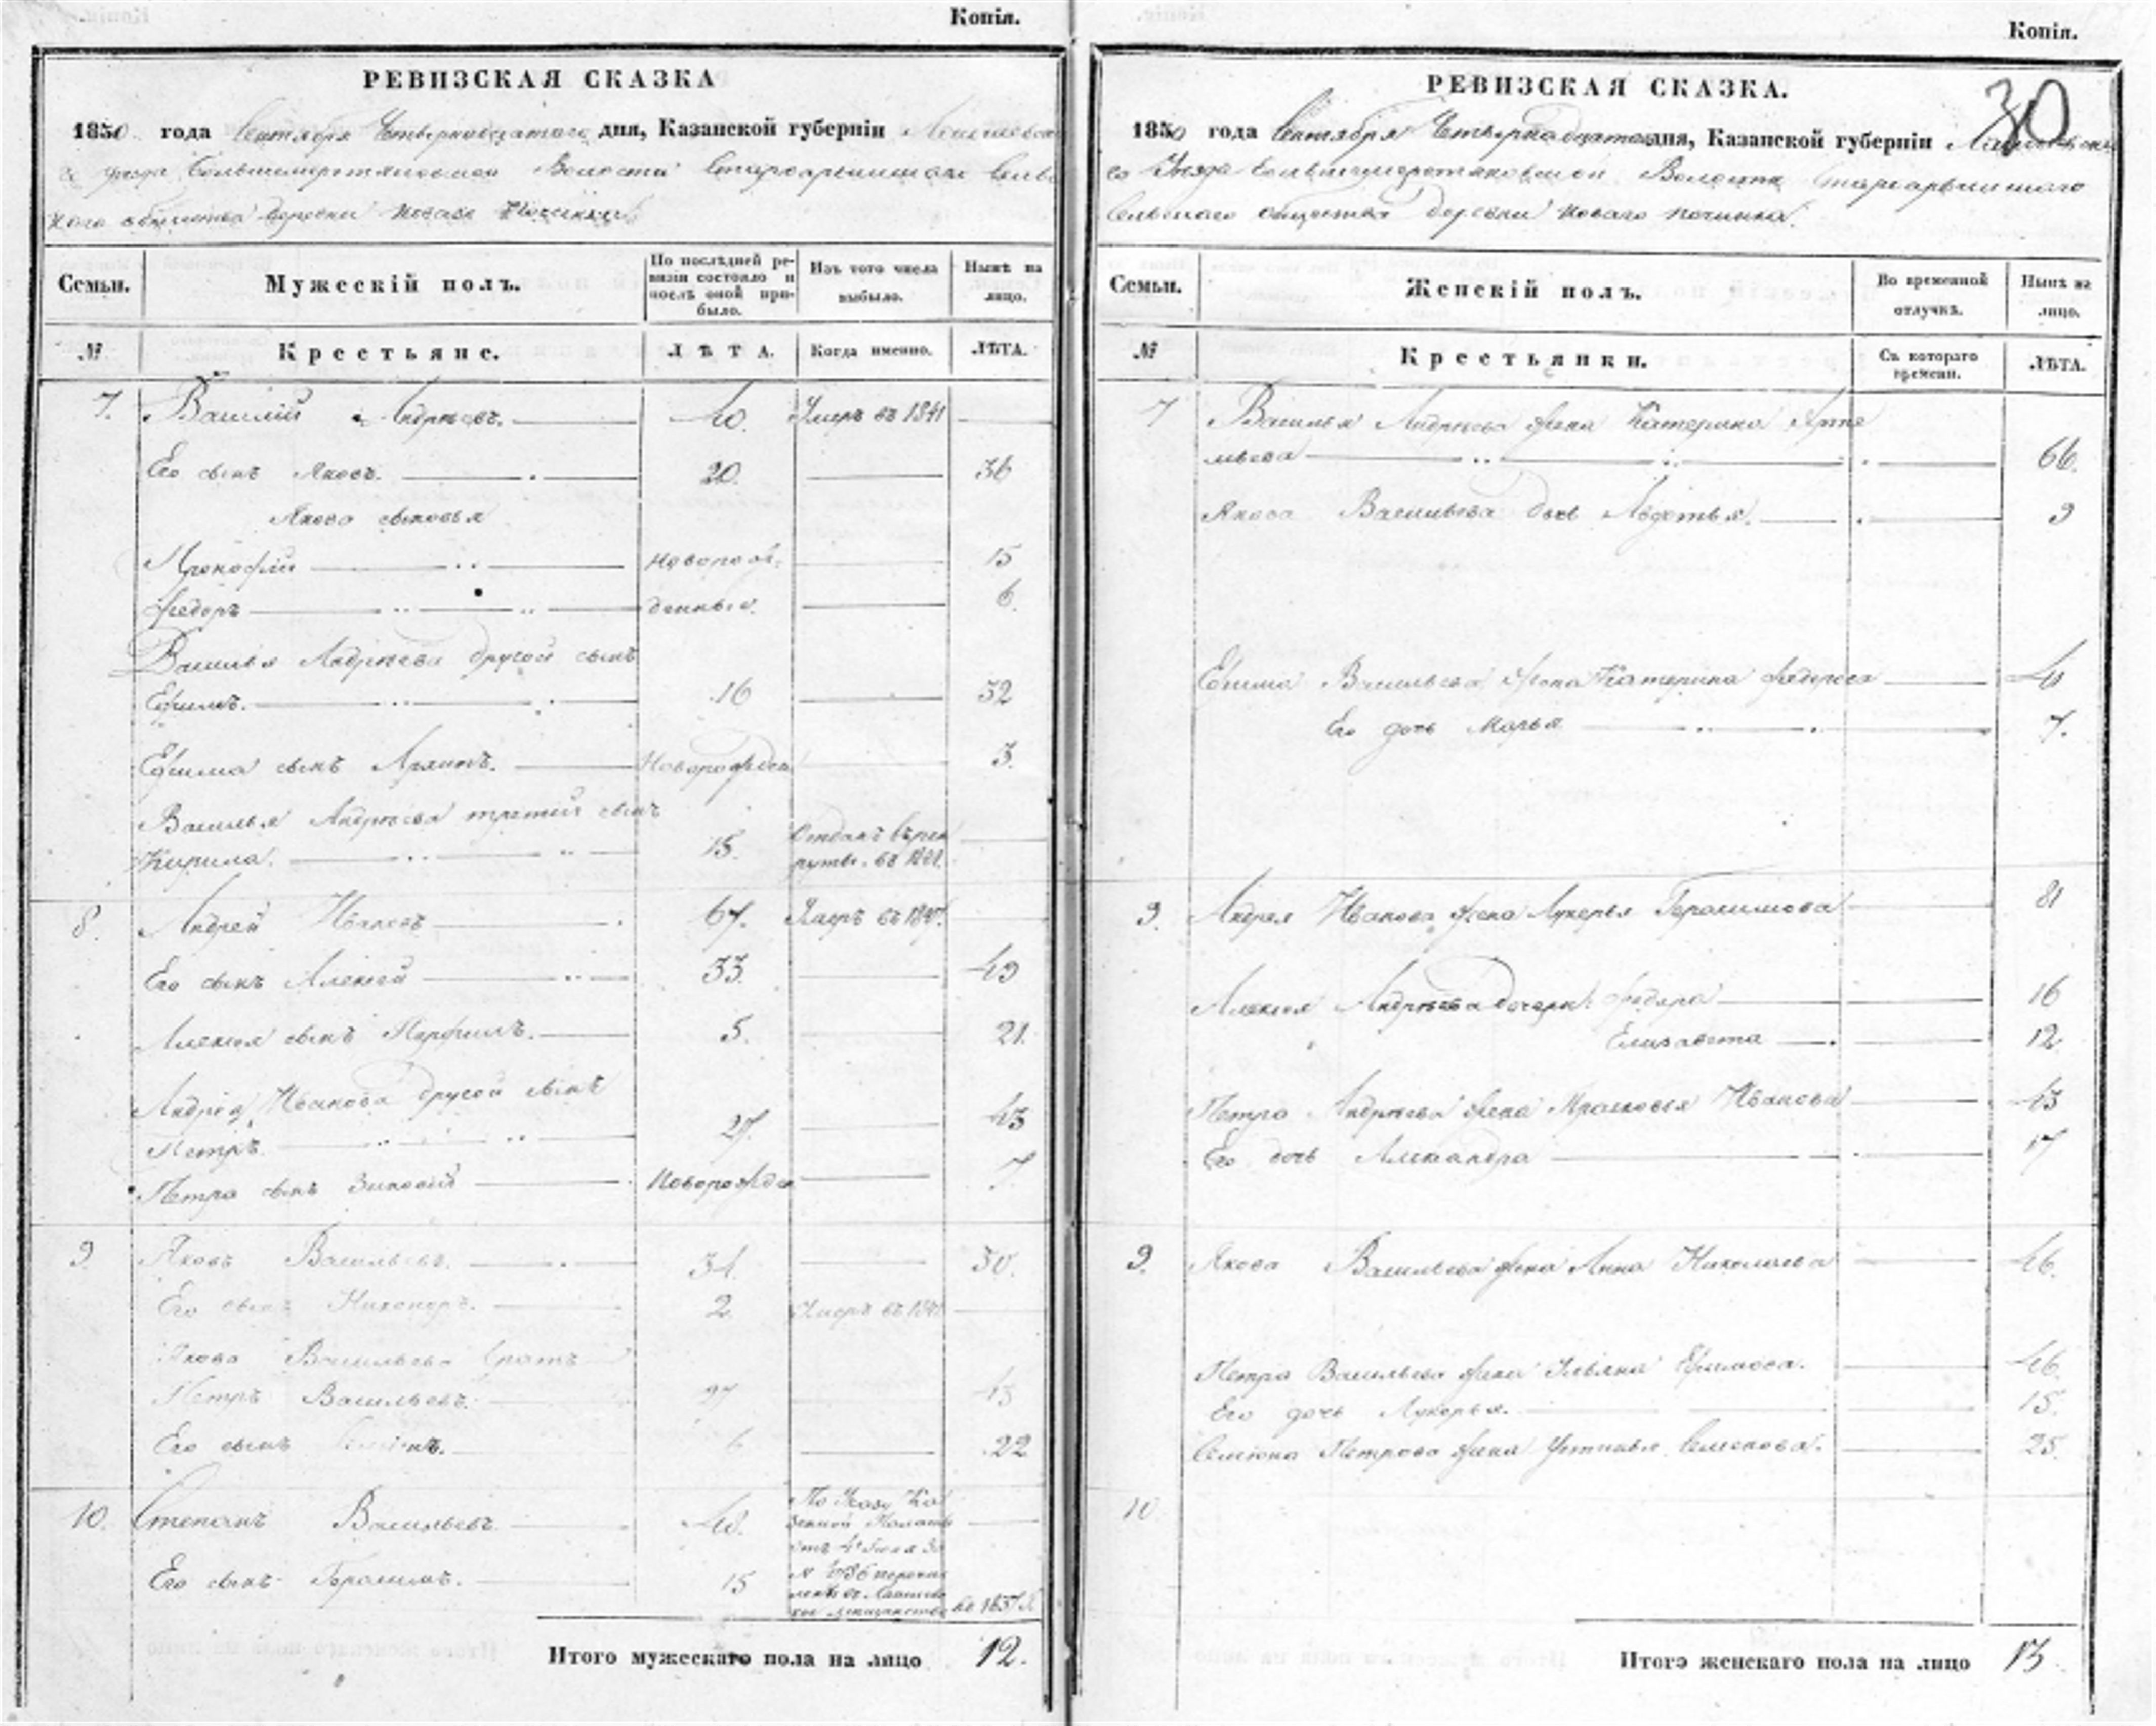 Копія.
РЕВИЗСКАЯ СКАЗКА
1850 года Сентября Четырнадцатого дня, Казанской губерніи
го уезда Волости
общества деревни Новаго Починка
Семьи.
Мужескій полъ.
По послѣдней ре-
визіи состояло и
послѣ оной при-
было.
Изъ того числа
выбыло.
Нынѣ на
лицо.
№
Крестьяне.
ЛѢТА.
Когда именно.
ЛѢТА.
7. Василій Андреевъ. 40. Умеръ въ 1841
Его сынъ Яковъ. 20. 36
Якова сыновья
Прокофій новорож- 15
Федоръ денные. 6.
Василья Андреева другой сынъ
Ефимъ. 16 32
Ефима сынъ Новорожден 3.
Василья Андреева третій сынъ
Кирила. 15. Отданъ въ рек
руты въ
8. Андрей Ивановъ 67. Умеръ въ
Его сынъ Алексей 33. 49
Алексея сынъ Парфилъ. 5. 21.
Андрея Иванова другой сынъ
Петръ 27. 43
Петра сынъ Зиновий Новорожден 7
9 Яковъ Васильевъ. 34. 50.
Его сынъ Никоноръ. 2 Умеръ въ 1841
Якова Васильева братъ
Петръ Васильевъ. 27 43
Его сынъ 6 22
10. Степанъ Васильевъ 40. По Указу Ка
зенной Палаты
отъ
Его сынъ Герасимъ. 15 № перечис
лены въ Лаишевс
кое мещанство съ 1837 г.
Итого мужескаго пола на лицо 12.
Копія.
30
РЕВИЗСКАЯ СКАЗКА.
1850 года Сентября Четырнадцатого дня, Казанской губерніи
го Уезда Волости
Сельскаго общества деревни Новаго Починка.
Семьи.
Женскій полъ.
Во временной
отлучкѣ.
Нынѣ на
лицо.
№
Крестьянки.
Съ котораго
времени.
ЛѢТА.
7 Василья Андреева жена Катерина Арте
мьева 66.
Якова Васильева дочь Авдотья. 9
Ефима Васильева жена Катерина Федорова 40
Его дочь Марья 7.
9. Андрея Иванова жена Лукерья Герасимова 81
Алексея Андреева дочери: Федора 16
Елизавета 12
Петра Андреева жена Прасковья Иванова 43
Его дочь Александра 17
9. Якова Васильева жена Анна Николаева 46.
Петра Васильева жена Ульяна Ефимова. 46.
Его дочь Лукерья. 15.
Семёна Петрова жена Устинья Семенова. 25.
10
Итого женскаго пола на лицо 13